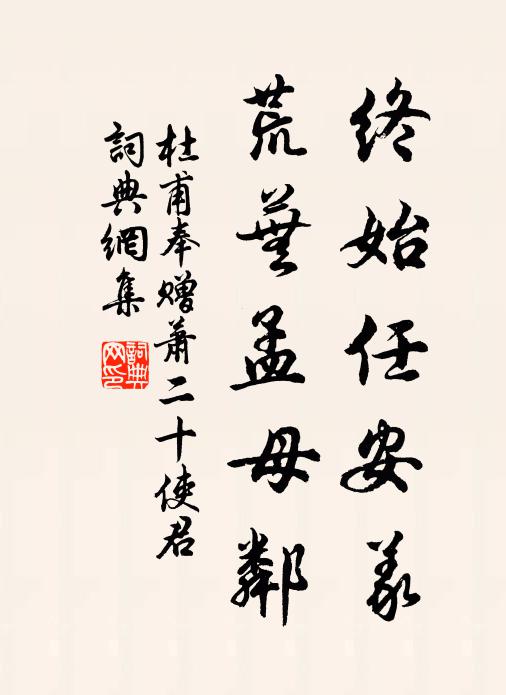 終始任安義
荒蕪孟母鄰
杜甫奉赠蕭二十使君
詞典網集
詞典
网印